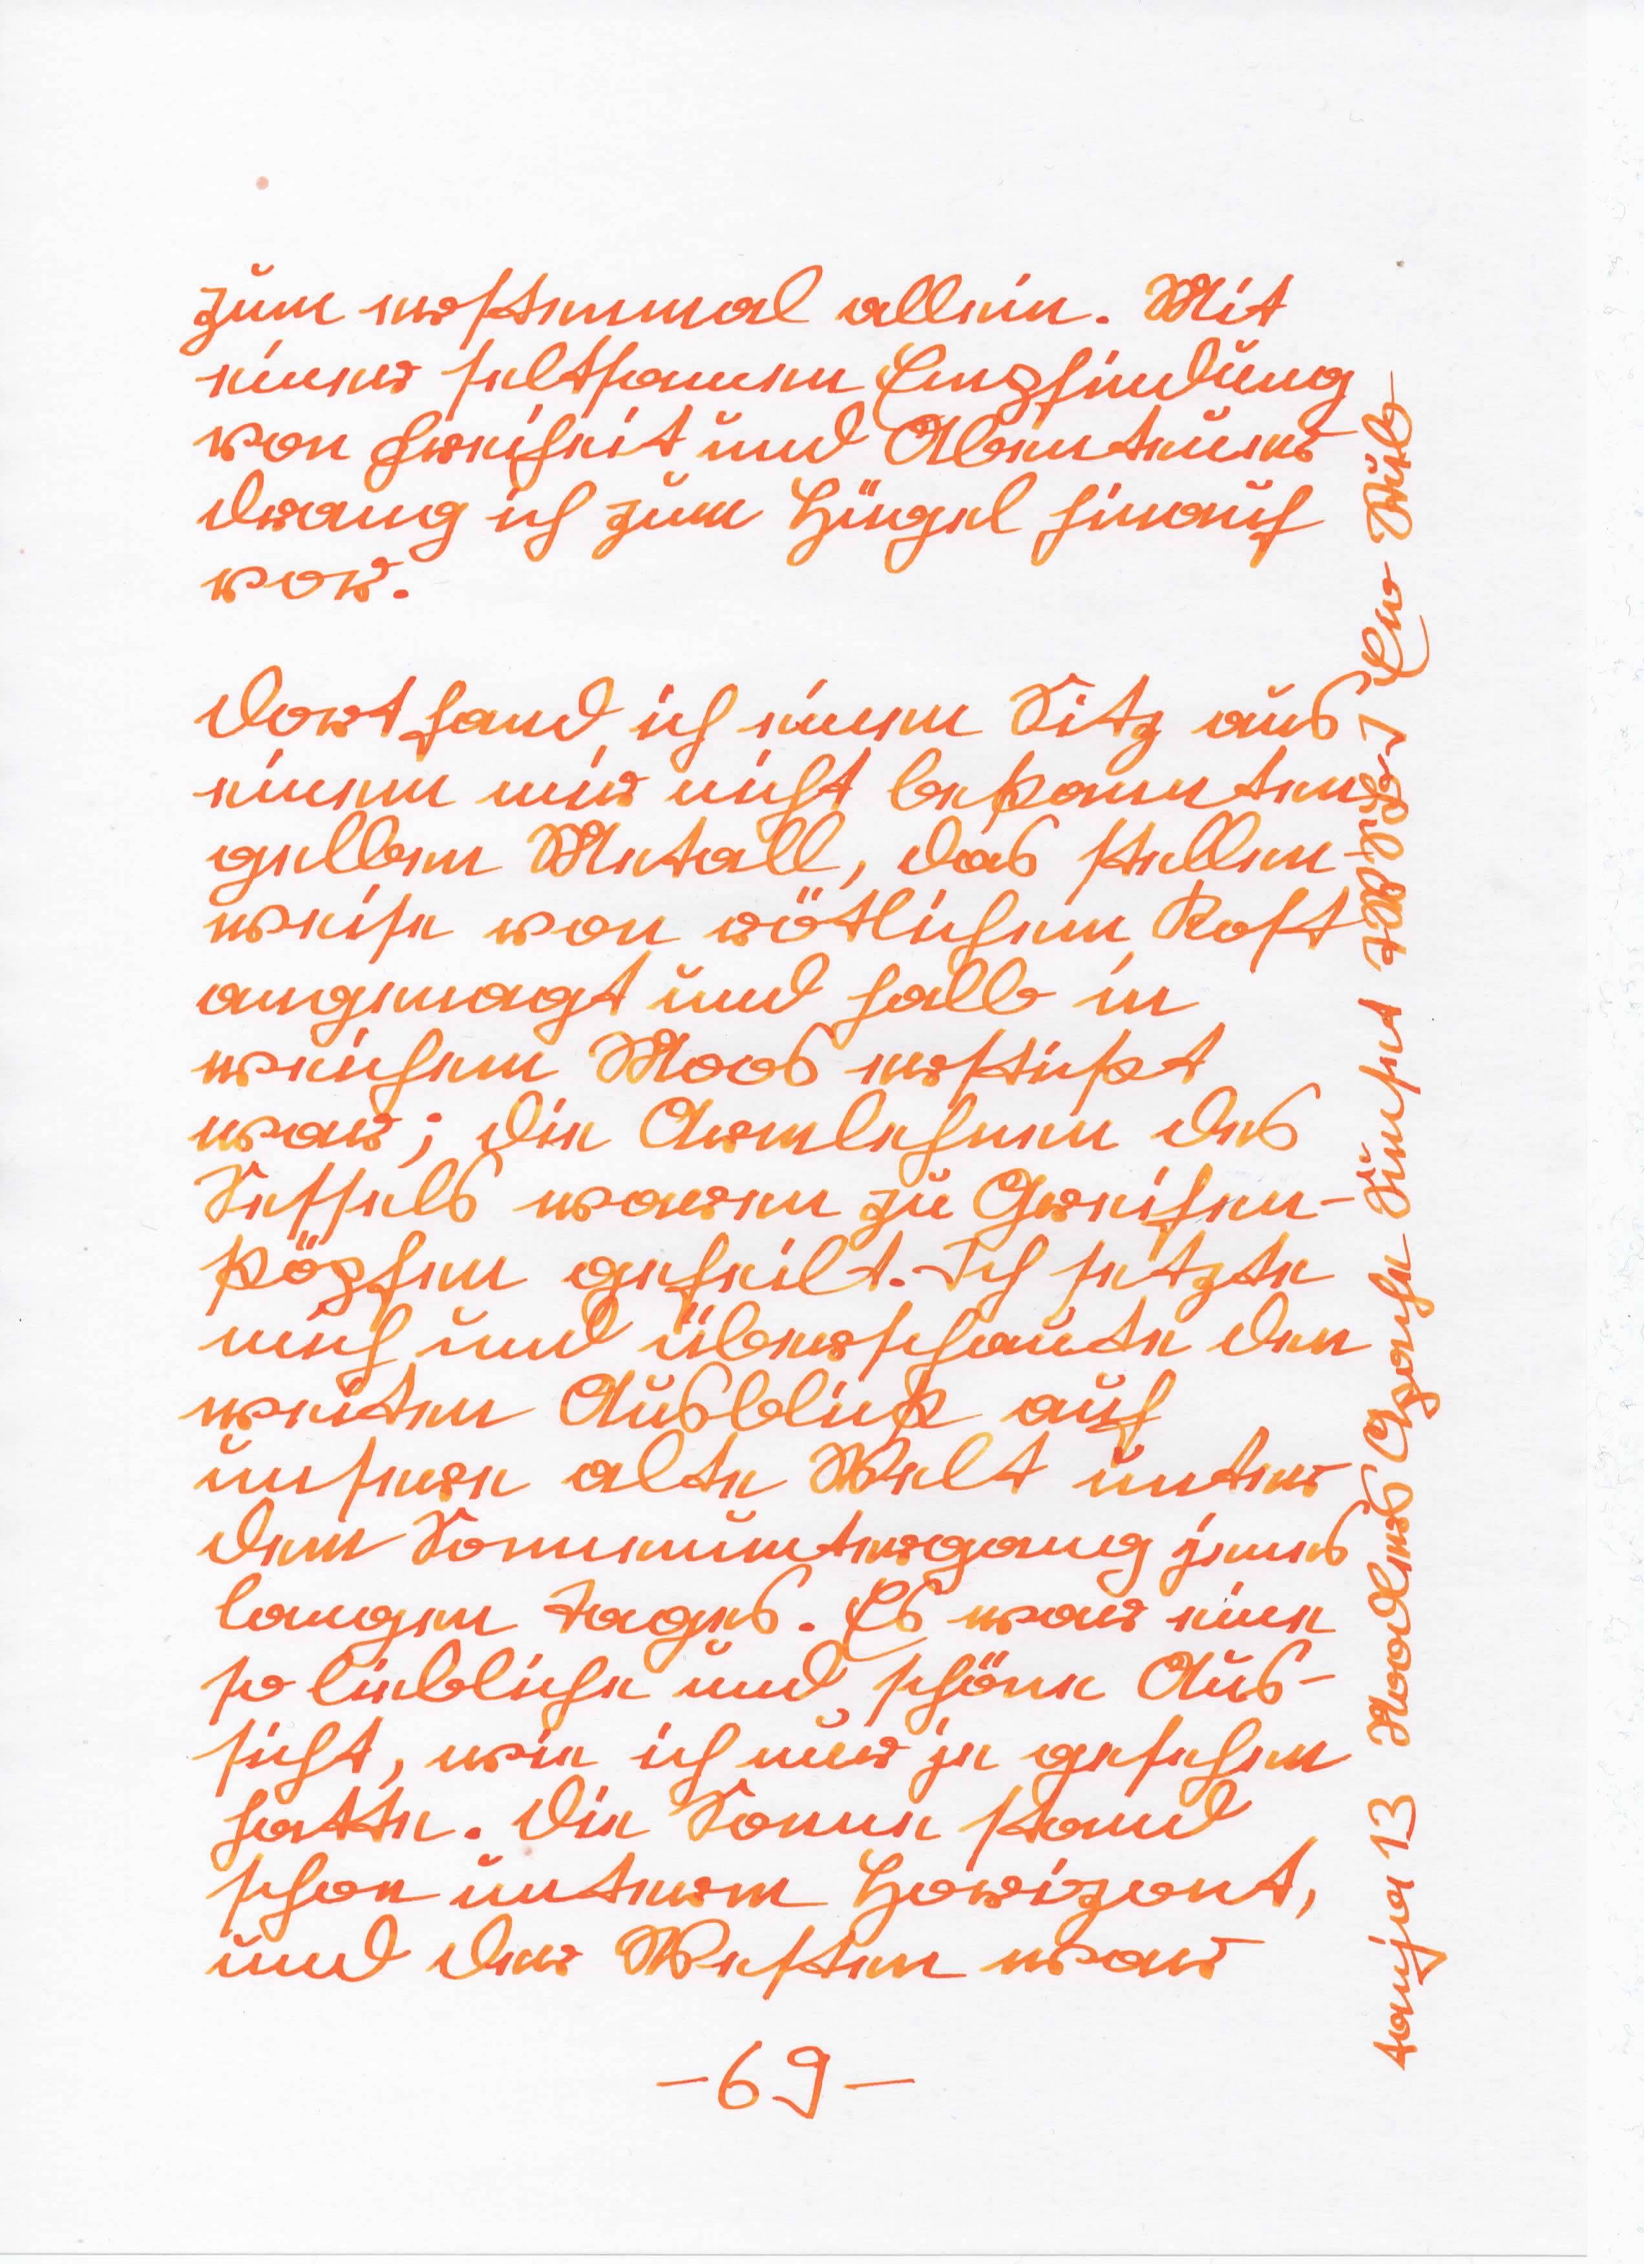 zum erstenmal allein. Mit
einer seltsamen Empfindung
von Freiheit und Abenteuer
drang ich zum Hügel hinauf
vor.
Dort fand ich einen Sitz aus
einem mir nicht bekannten
gelben Metall, das stellen-
weise von rötlichem Rost
angenagt und halb in
weichem Moos erstickt
war; die Armlehnen des
Sessels waren zu Greifen-
köpfen gefeilt. Ich setzte
mich und überschaute den
weiten Ausblick auf
unsere alte Welt unter
dem Sonnenuntergang jenes
langen Tages. Es war eine
so liebliche und schöne Aus-
sicht, wie ich nur je gesehen
hatte. Die Sonne stand
schon unterm Horizont,
und der Westen war
-69-
tanja 13 Noodlers Apache Sunset